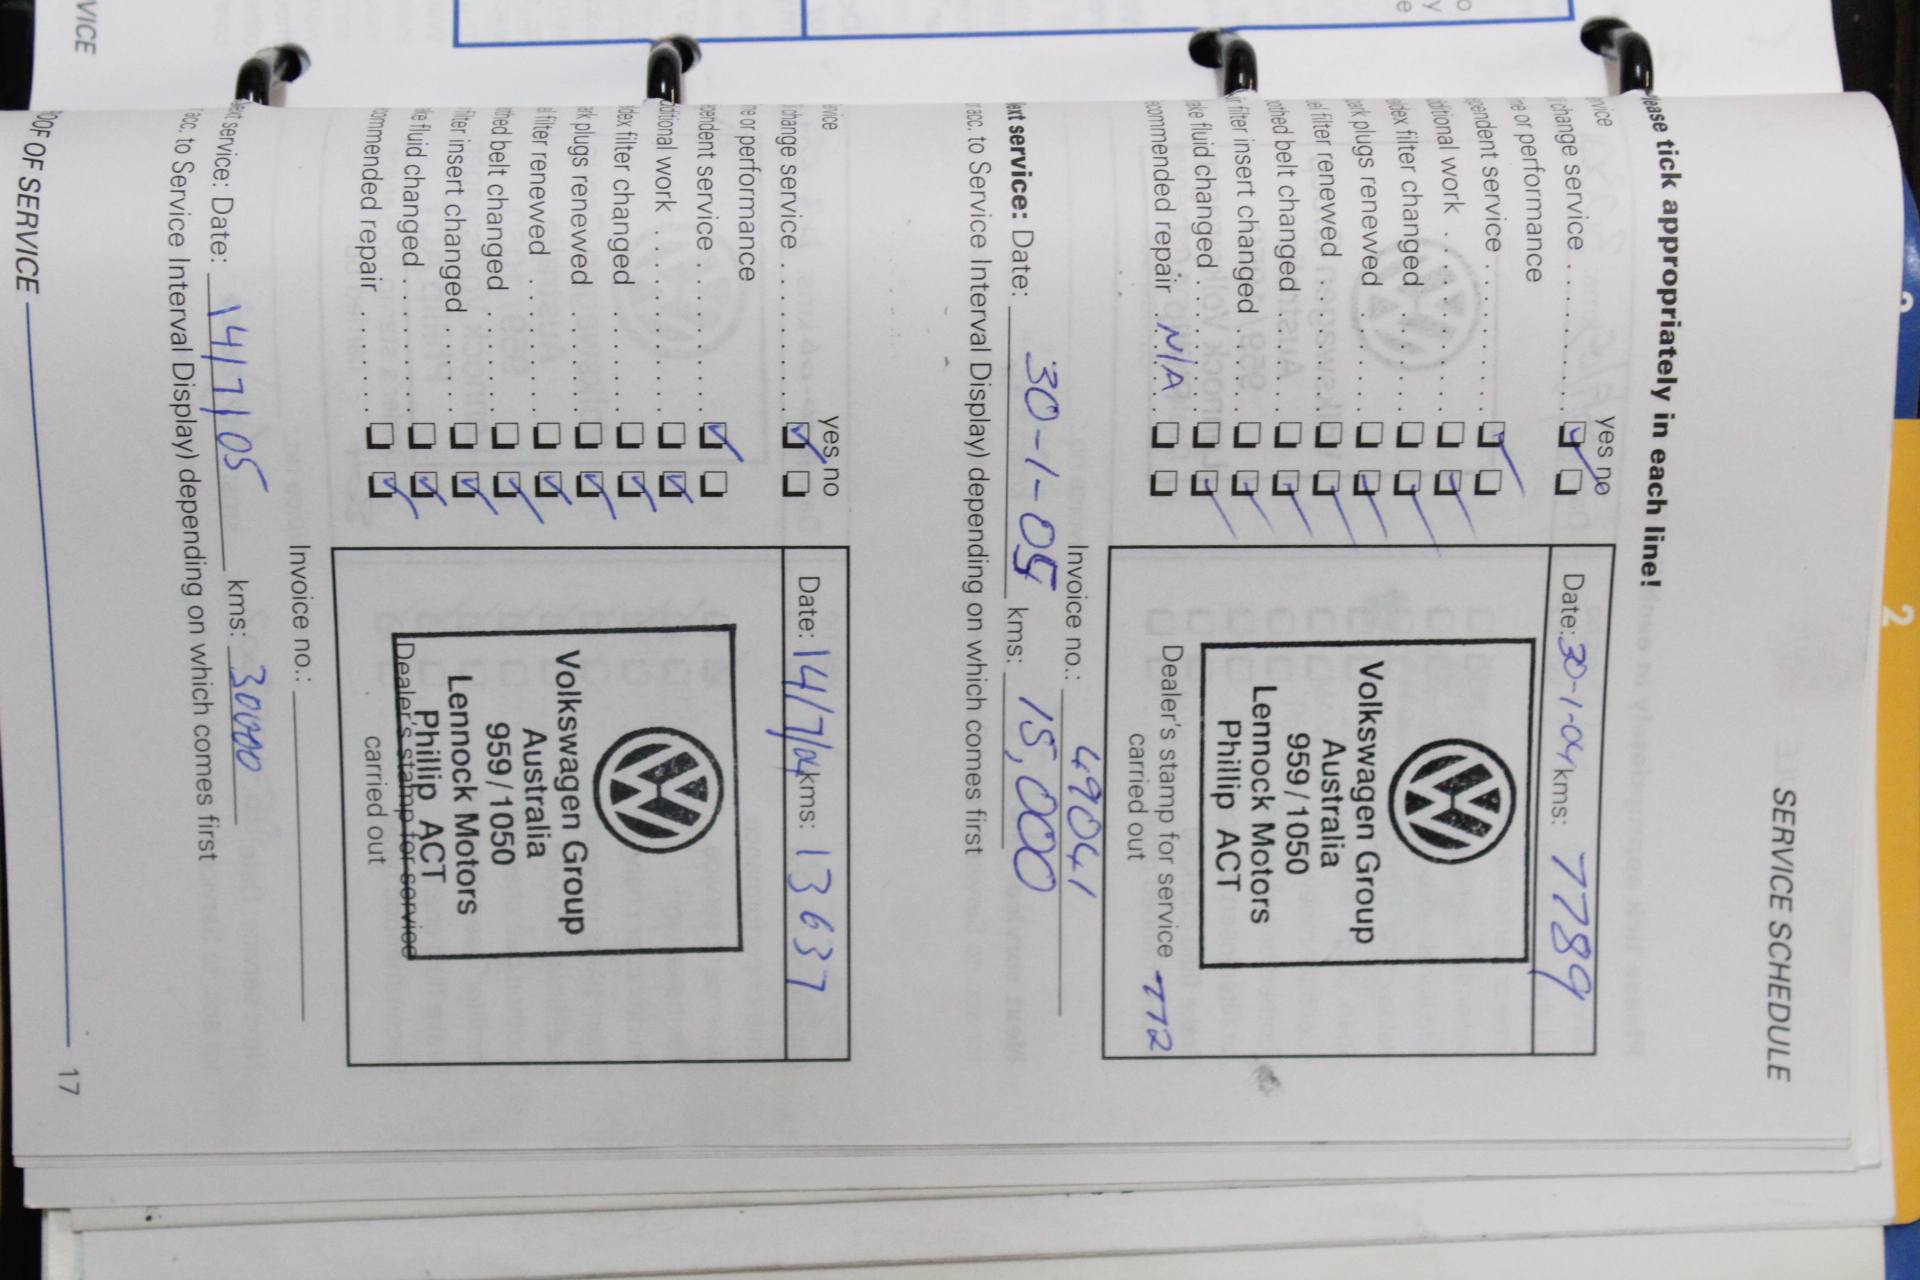 SERVICE SCHEDULE
ease tick appropriately in each line!
yes no
rvice
change service
Date: 30-1-04 kms: 7789
e or performance
pendent service
ditional work
ldex filter changed
ark plugs renewed
el filter renewed
othed belt changed
r filter insert changed
ake fluid changed
ecommended repair N/A
Volkswagen Group
Australia
959/1050
Lennock Motors
Phillip ACT
Dealer's stamp for service
carried out
772
Invoice no.: 49041
ext service: Date: 30-1-05 kms: 15,000
acc. to Service Interval Display) depending on which comes first
yes no
rvice
change service
Date: 14/7/04 kms: 13637
ne or performance
pendent service
ditional work
ldex filter changed
rk plugs renewed
el filter renewed
thed belt changed
filter insert changed
ke fluid changed
ommended repair
Volkswagen Group
Australia
959/1050
Lennock Motors
Phillip ACT
Dealer's stamp for service
carried out
Invoice no.:
ext service: Date: 14/7/05 kms: 30000
acc. to Service Interval Display) depending on which comes first
OOF OF SERVICE
17
VICE
2